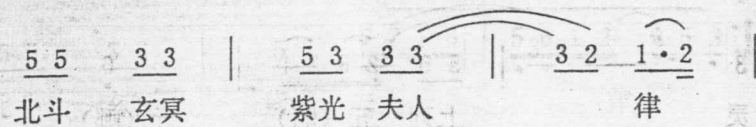 5 5 3 3 | 5 3 3 3 | 3 2 1·2
北斗 玄冥 紫光 夫人 律